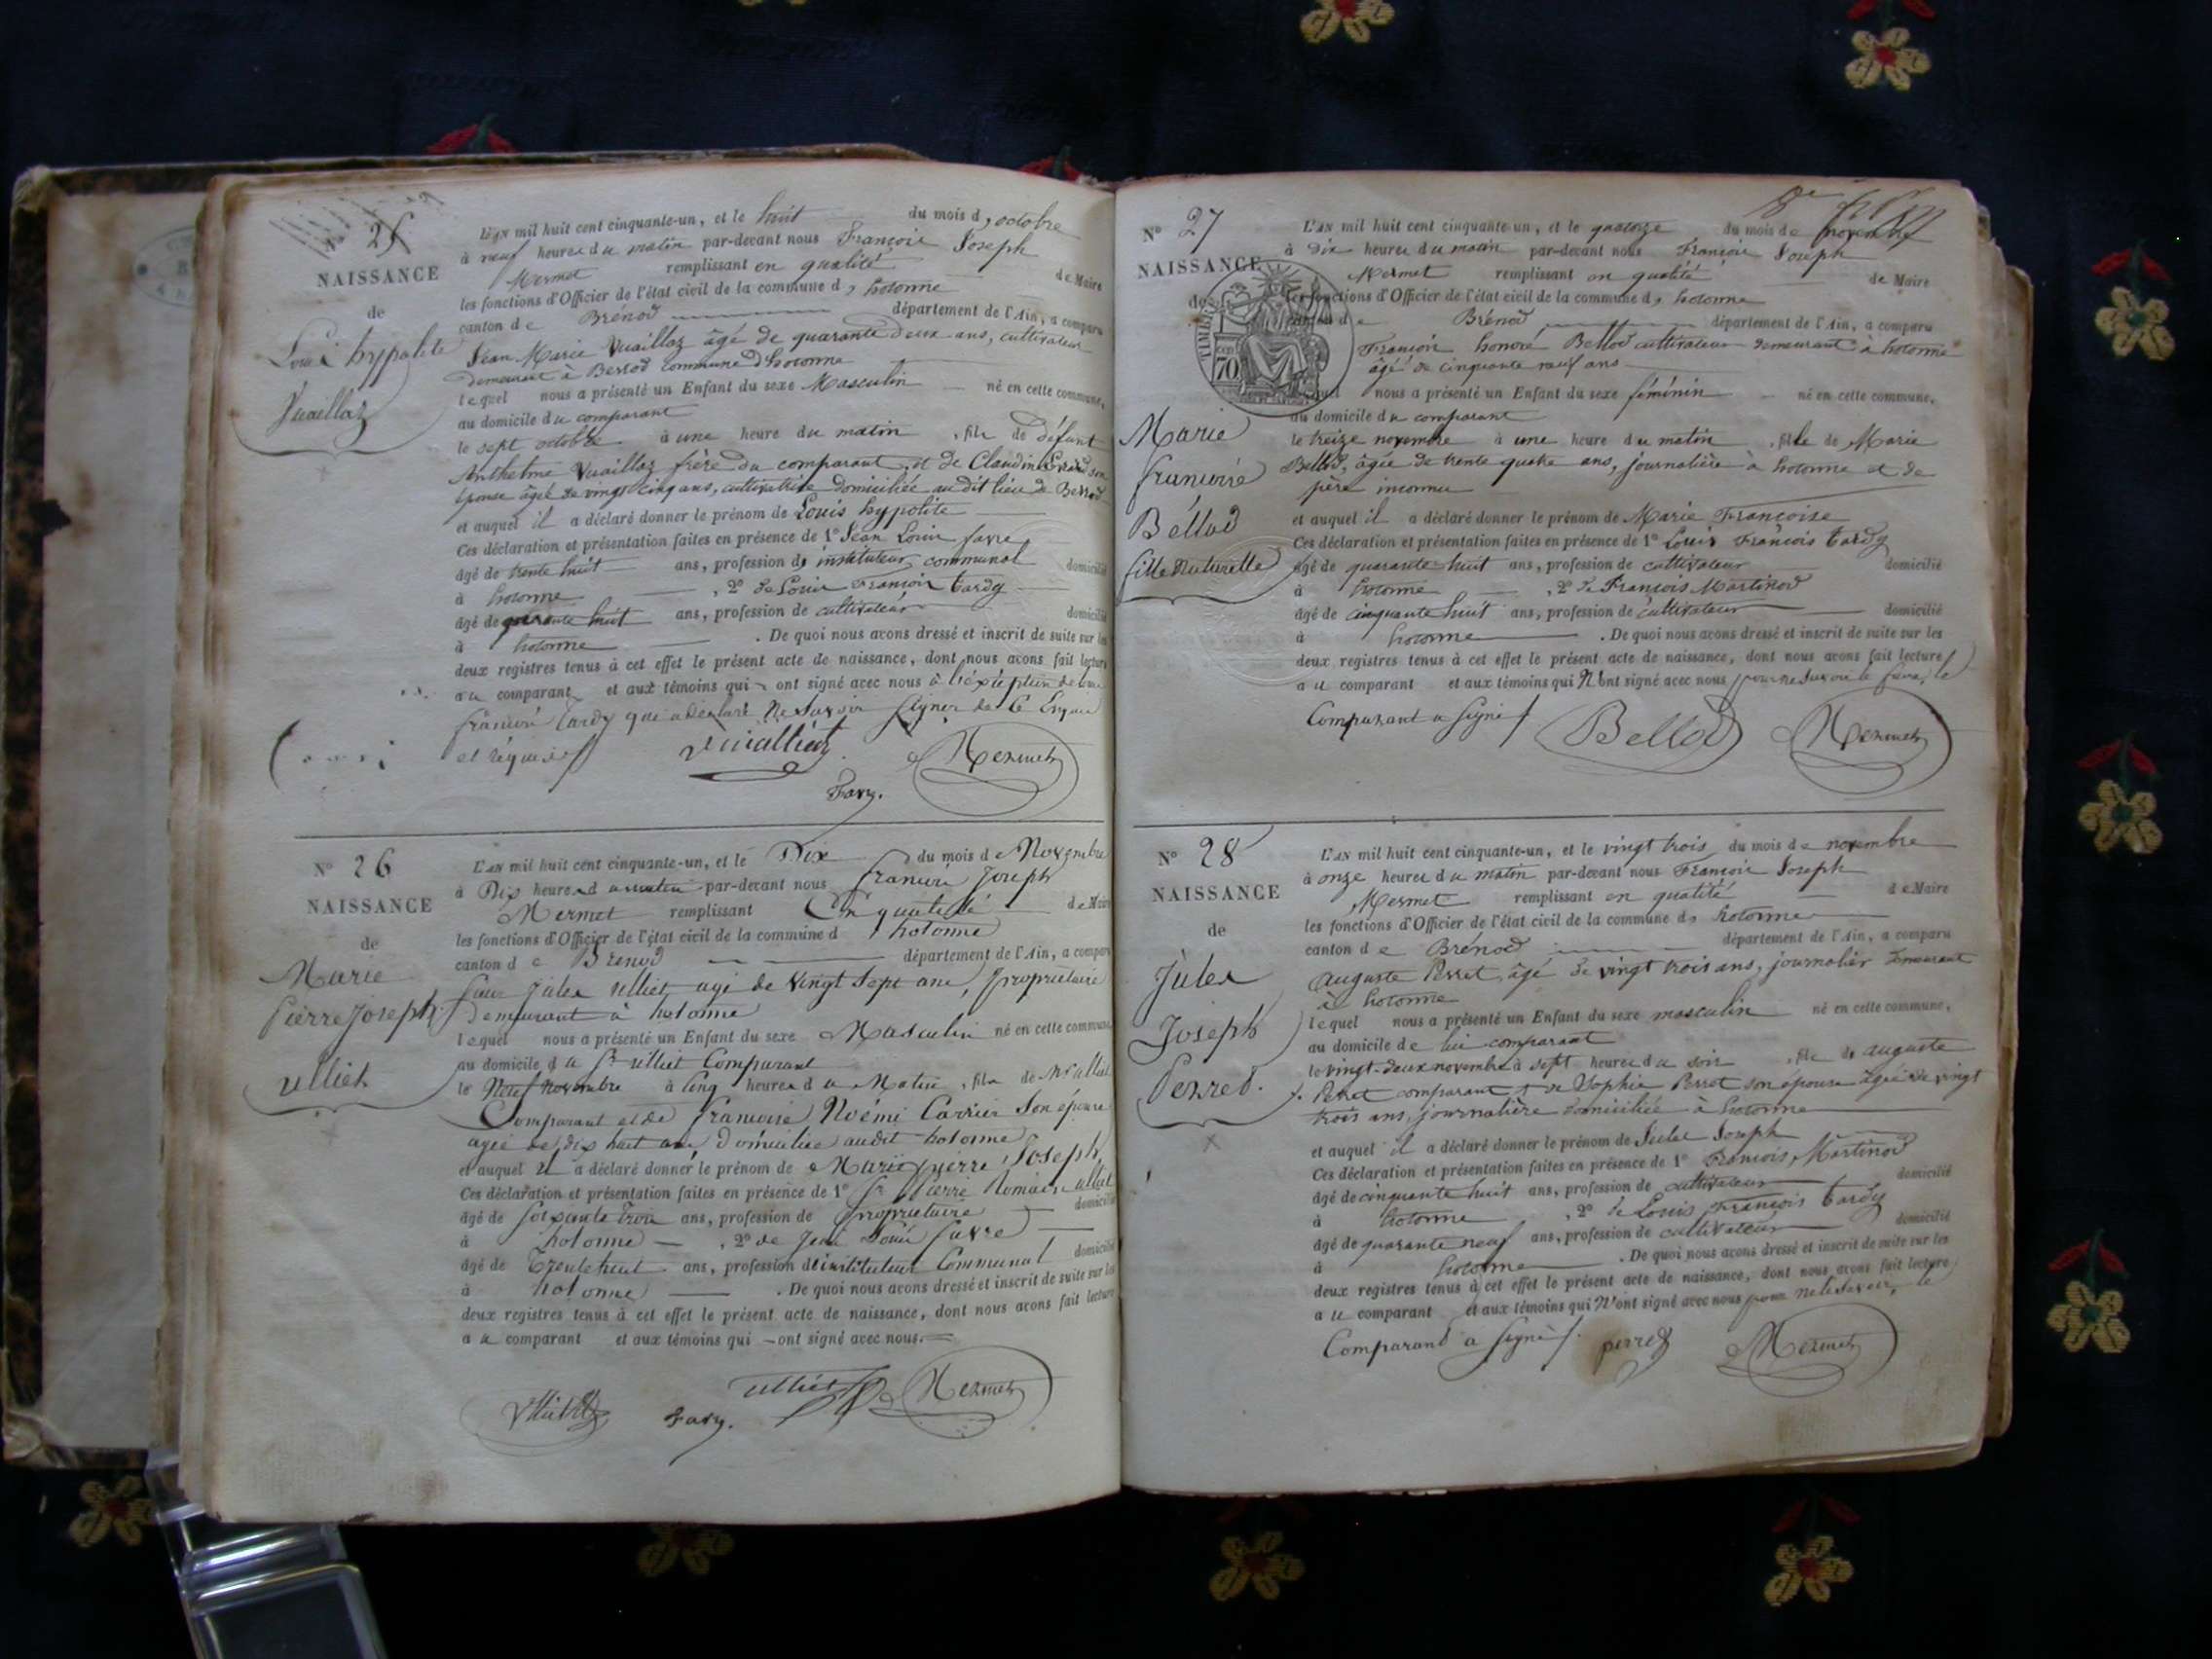 N° 25
NAISSANCE
de
Louis hypolite
Vuaillaz
L'AN mil huit cent cinquante-un, et le huit du mois d'octobre
à neuf heures du matin par-devant nous François Joseph
Mermet remplissant en qualité de Maire
les fonctions d'Officier de l'état civil de la commune d'hotonne
canton de Brénod département de l'Ain, a comparu
Jean Marie Vuaillaz âgé de quarante deux ans, cultivateur
demeurant à Bessod commune d'hotonne
lequel nous a présenté un Enfant du sexe Masculin né en cette commune,
au domicile du comparant
le sept octobre à une heure du matin, fils de défunt
Anthelme Vuaillaz frère du comparant, et de Claudine son
épouse âgée de vingt cinq ans, cultivatrice domiciliée au dit lieu de
et auquel il a déclaré donner le prénom de Louis hypolite
Ces déclaration et présentation faites en présence de 1° Jean Louis favre
âgé de trente huit ans, profession d'instituteur communal domicilié
à hotonne, 2° de Louis François tardy
âgé de quarante huit ans, profession de cultivateur domicilié
à hotonne. De quoi nous avons dressé et inscrit de suite sur les
deux registres tenus à cet effet le présent acte de naissance, dont nous avons fait lecture
au comparant et aux témoins qui ont signé avec nous à l'exception de
françois Tardy qui a déclaré ne savoir signer de ce
et requis
Mermet
N° 26
NAISSANCE
de
Marie
Pierre Joseph
ulliet
L'AN mil huit cent cinquante-un, et le Dix du mois de Novembre
à Dix heures du matin par-devant nous françois Joseph
Mermet remplissant en qualité de Maire
les fonctions d'Officier de l'état civil de la commune d'hotonne
canton de Brenod département de l'Ain, a comparu
Jules ulliet agé de vingt sept ans, propriétaire
demeurant à hotonne
lequel nous a présenté un Enfant du sexe Masculin né en cette commune,
au domicile du Sr ulliet Comparant
le Neuf Novembre à cinq heures du Matin, fils de
Comparant et de françoise Noémi Carrier son épouse
agée de dix huit ans domiciliée audit hotonne
et auquel il a déclaré donner le prénom de Marie pierre Joseph
Ces déclaration et présentation faites en présence de 1° Sr Pierre Romain ulliet
âgé de soixante trois ans, profession de propriétaire domicilié
à hotonne, 2° de Jean Louis favre
âgé de trente huit ans, profession d'instituteur Communal domicilié
à hotonne. De quoi nous avons dressé et inscrit de suite sur les
deux registres tenus à cet effet le présent acte de naissance, dont nous avons fait lecture
au comparant et aux témoins qui ont signé avec nous.
ulliet Mermet
N° 27
NAISSANCE
de
TIMBRE
70
Marie
françoise
Bellod
fille Naturelle
L'AN mil huit cent cinquante-un, et le quatorze du mois de novembre
à dix heures du matin par-devant nous François Joseph
Mermet remplissant en qualité de Maire
les fonctions d'Officier de l'état civil de la commune d'hotonne
canton de Brénod département de l'Ain, a comparu
François honoré Bellod cultivateur demeurant à hotonne
âgé de cinquante neuf ans
lequel nous a présenté un Enfant du sexe féminin né en cette commune,
au domicile du comparant
le treize novembre à une heure du matin, fille de Marie
Bellod, âgée de trente quatre ans, journalière à hotonne et de
père inconnu
et auquel il a déclaré donner le prénom de Marie Françoise
Ces déclaration et présentation faites en présence de 1° Louis François tardy
âgé de quarante huit ans, profession de cultivateur domicilié
à hotonne, 2° de François Martinod
âgé de cinquante huit ans, profession de cultivateur domicilié
à hotonne. De quoi nous avons dressé et inscrit de suite sur les
deux registres tenus à cet effet le présent acte de naissance, dont nous avons fait lecture
au comparant et aux témoins qui N'ont signé avec nous pour ne savoir le faire, le
Comparant a signé
Bellod Mermet
N° 28
NAISSANCE
de
Jules
Joseph
Perret
L'AN mil huit cent cinquante-un, et le vingt trois du mois de novembre
à onze heures du matin par-devant nous François Joseph
Mermet remplissant en qualité de Maire
les fonctions d'Officier de l'état civil de la commune d'hotonne
canton de Brénod département de l'Ain, a comparu
auguste Perret, âgé de vingt trois ans, journalier demeurant
à hotonne
lequel nous a présenté un Enfant du sexe masculin né en cette commune,
au domicile de lui comparant
le vingt-deux novembre à sept heures du soir, fils de auguste
Perret comparant et de Sophie Perret son épouse âgée de vingt
trois ans, journalière domiciliée à hotonne
et auquel il a déclaré donner le prénom de Jules Joseph
Ces déclaration et présentation faites en présence de 1° François Martinod
âgé de cinquante huit ans, profession de cultivateur domicilié
à hotonne, 2° de Louis François tardy
âgé de quarante neuf ans, profession de cultivateur domicilié
à hotonne. De quoi nous avons dressé et inscrit de suite sur les
deux registres tenus à cet effet le présent acte de naissance, dont nous avons fait lecture
au comparant et aux témoins qui N'ont signé avec nous pour ne le savoir, le
Comparant a signé
perret Mermet